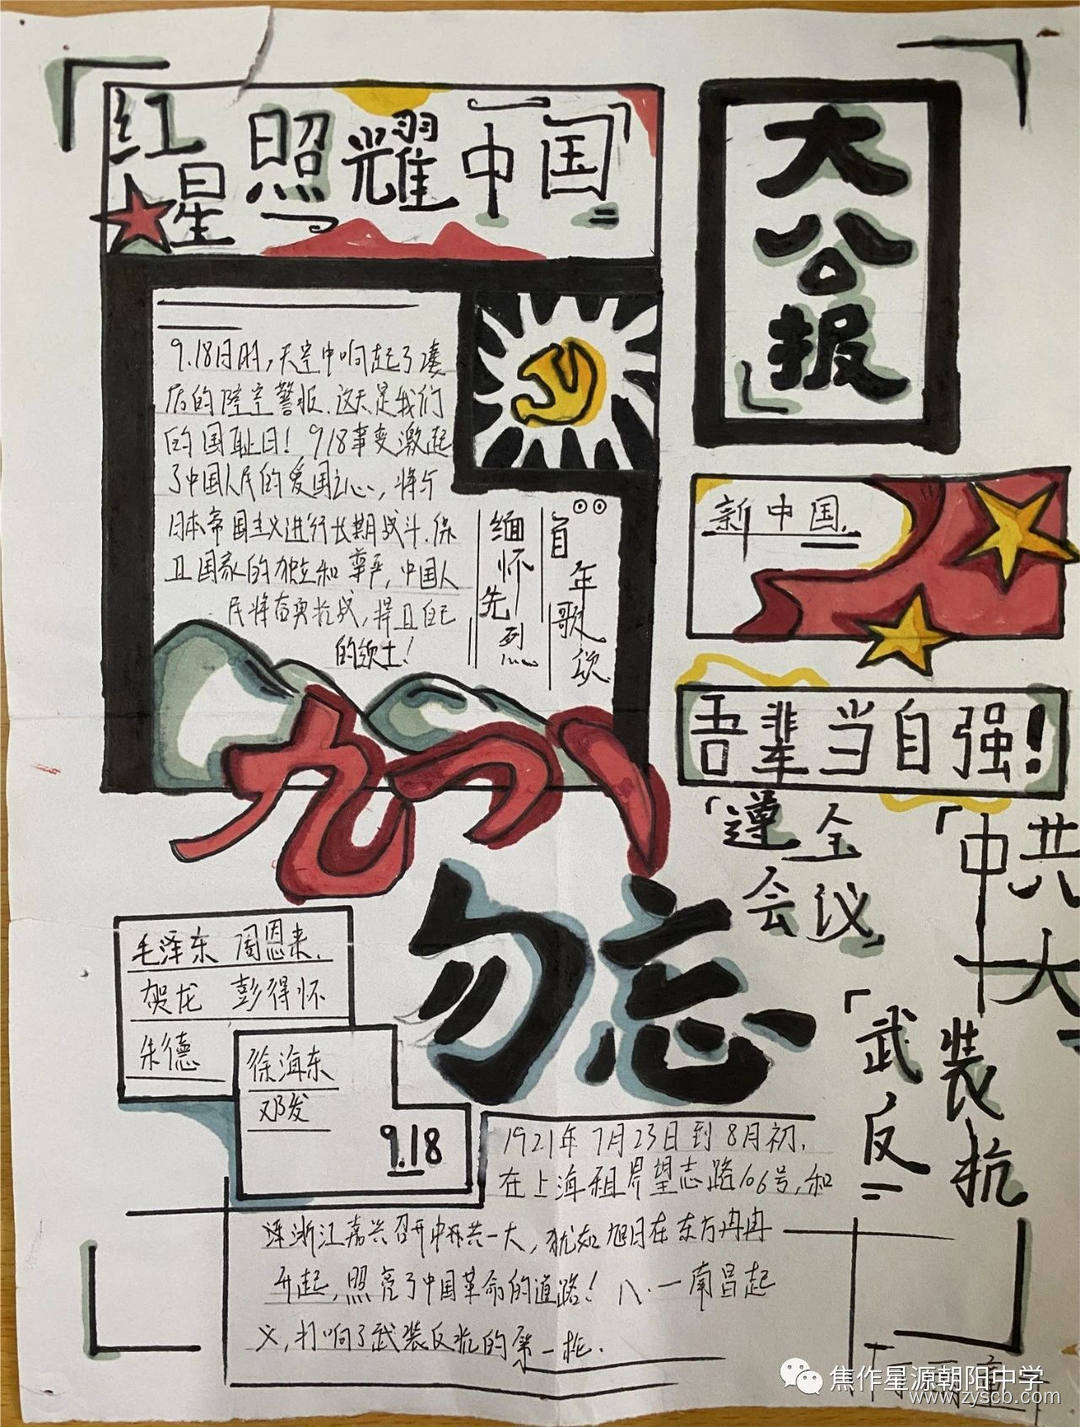 红星照耀中国
大公报
9.18日时,天空中响起了凄
厉的防空警报.这天是我们
的国耻日!918事变激起
了中国人民的爱国之心,将与
日本帝国主义进行长期战斗.保
卫国家的独立和尊严,中国人
民将奋勇抗战,捍卫自己
的领土!
缅怀先烈
百年歌颂
新中国.
吾辈当自强!
九一八
勿忘
「遵全
会议」
「中共
一大」
「武装
反抗」
毛泽东 周恩来.
贺龙 彭得怀
朱德
徐海东
邓发
9.18
1921年7月23日到8月初,
在上海租界望志路106号,和
浙江嘉兴召开中共一大,犹如旭日在东方冉冉
升起,照亮了中国革命的道路!八.一南昌起
义,打响了武装反抗的第一枪.
焦作星源朝阳中学
www.zyscb.com